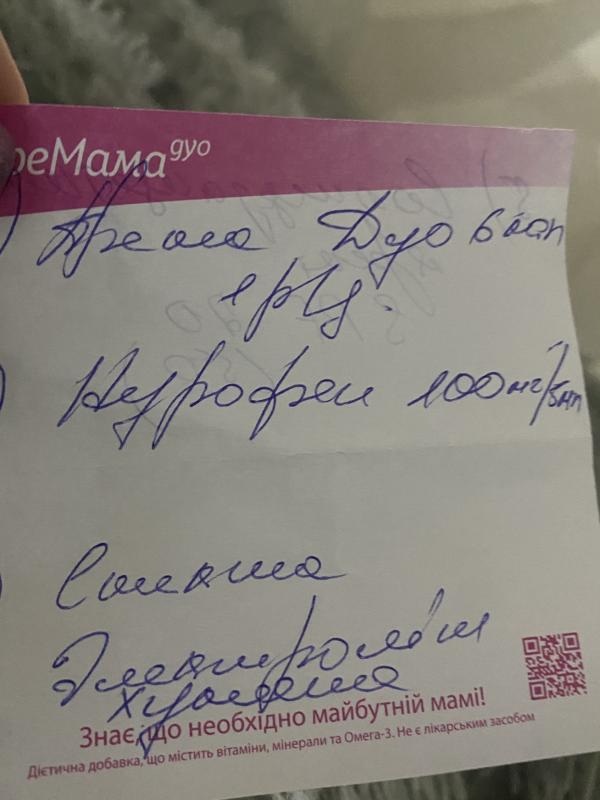 реМама дуо
Дуо 6 кап
1 р/д.
Нурофен 100мг/5мл
Электроліт
хумана
Знає, що необхідно майбутній мамі!
Дієтична добавка, що містить вітаміни, мінерали та Омега-3. Не є лікарським засобом